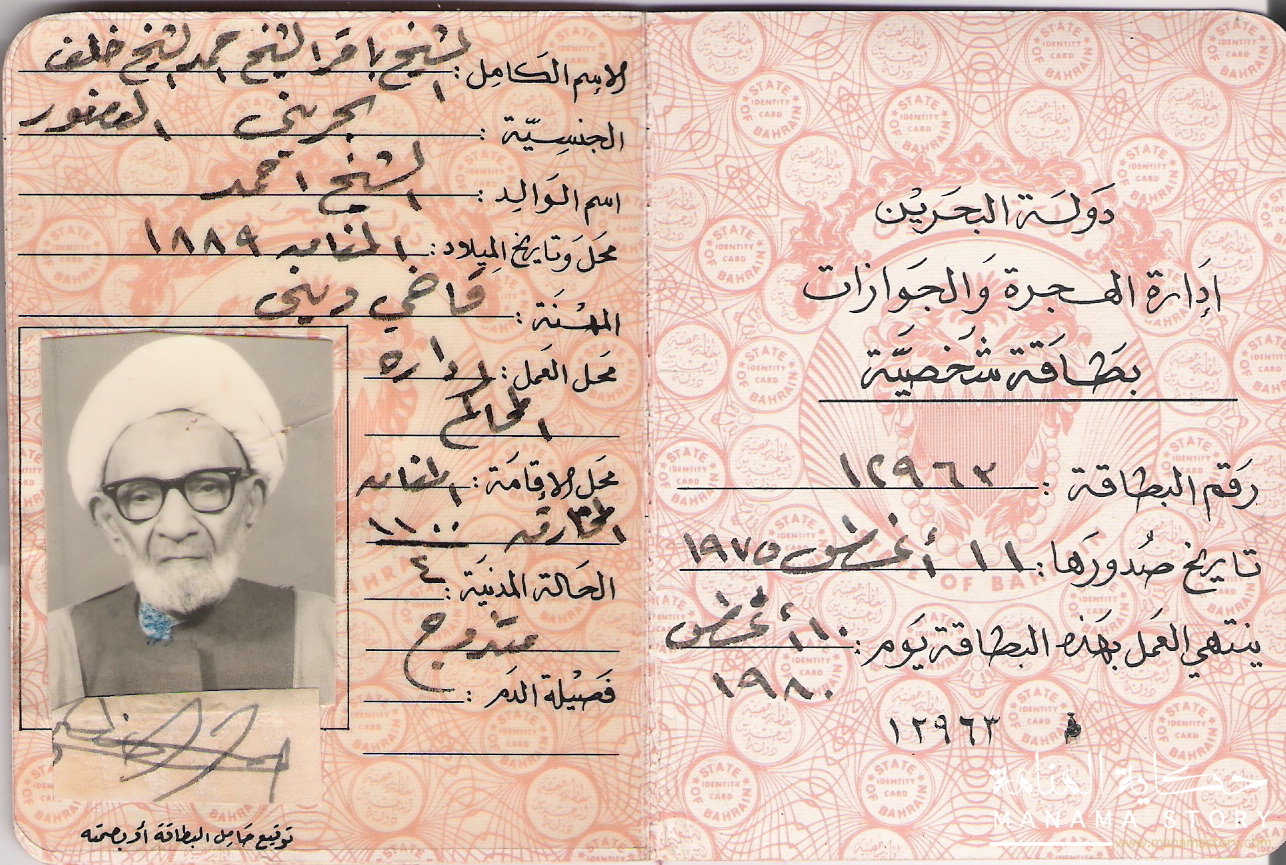 دولة البحرين
إدارة الهجرة والجوازات
بطاقة شخصية
رقم البطاقة : ١٢٩٦٣
تاريخ صدورها : ١١ أغسطس ١٩٧٥
ينتهي العمل بهذه البطاقة يوم : ١٠ أغسطس
١٩٨٠
١٢٩٦٣
الاسم الكامل : الشيخ باقر الشيخ احمد الشيخ خلف
العصفور
الجنسية : بحريني
اسم الوالد : الشيخ احمد
محل وتاريخ الميلاد : المنامه ١٨٨٩
المهنة : قاضي ديني
محل العمل : اداره
المحاكم
محل الإقامة : المنامه
المخارقه ١١٠٠
٤
الحالة المدنية :
متزوج
فصيلة الدم :
توقيع حامل البطاقة أو بصمته
STATE OF BAHRAIN
IDENTITY CARD
حكاية المنامة
MANAMA STORY